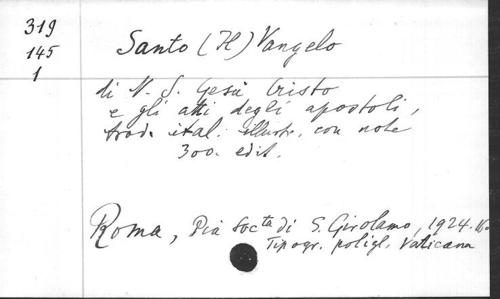 319
145
1
Santo (Il) Vangelo
di N. S. Gesù Cristo
e gli atti degli apostoli,
trad. ital. illustr. con note
300. edit.
Roma, Pia Soc.ta di S. Girolamo, 1924. 16o
Tipogr. poligl. Vaticana